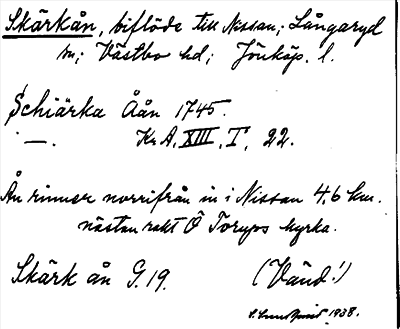 Skärkån, biflöde till Nissan; Långaryd
sn; Västbo hd; Jönköp. l.
Schiärka Åån 1745.
— Kr. A. XIII, I, 22.
Ån rinner norrifrån in i Nissan 4,6 km.
nästan rakt Ö Torups kyrka.
Skärk ån G. 19. (Vänd!)
1938.